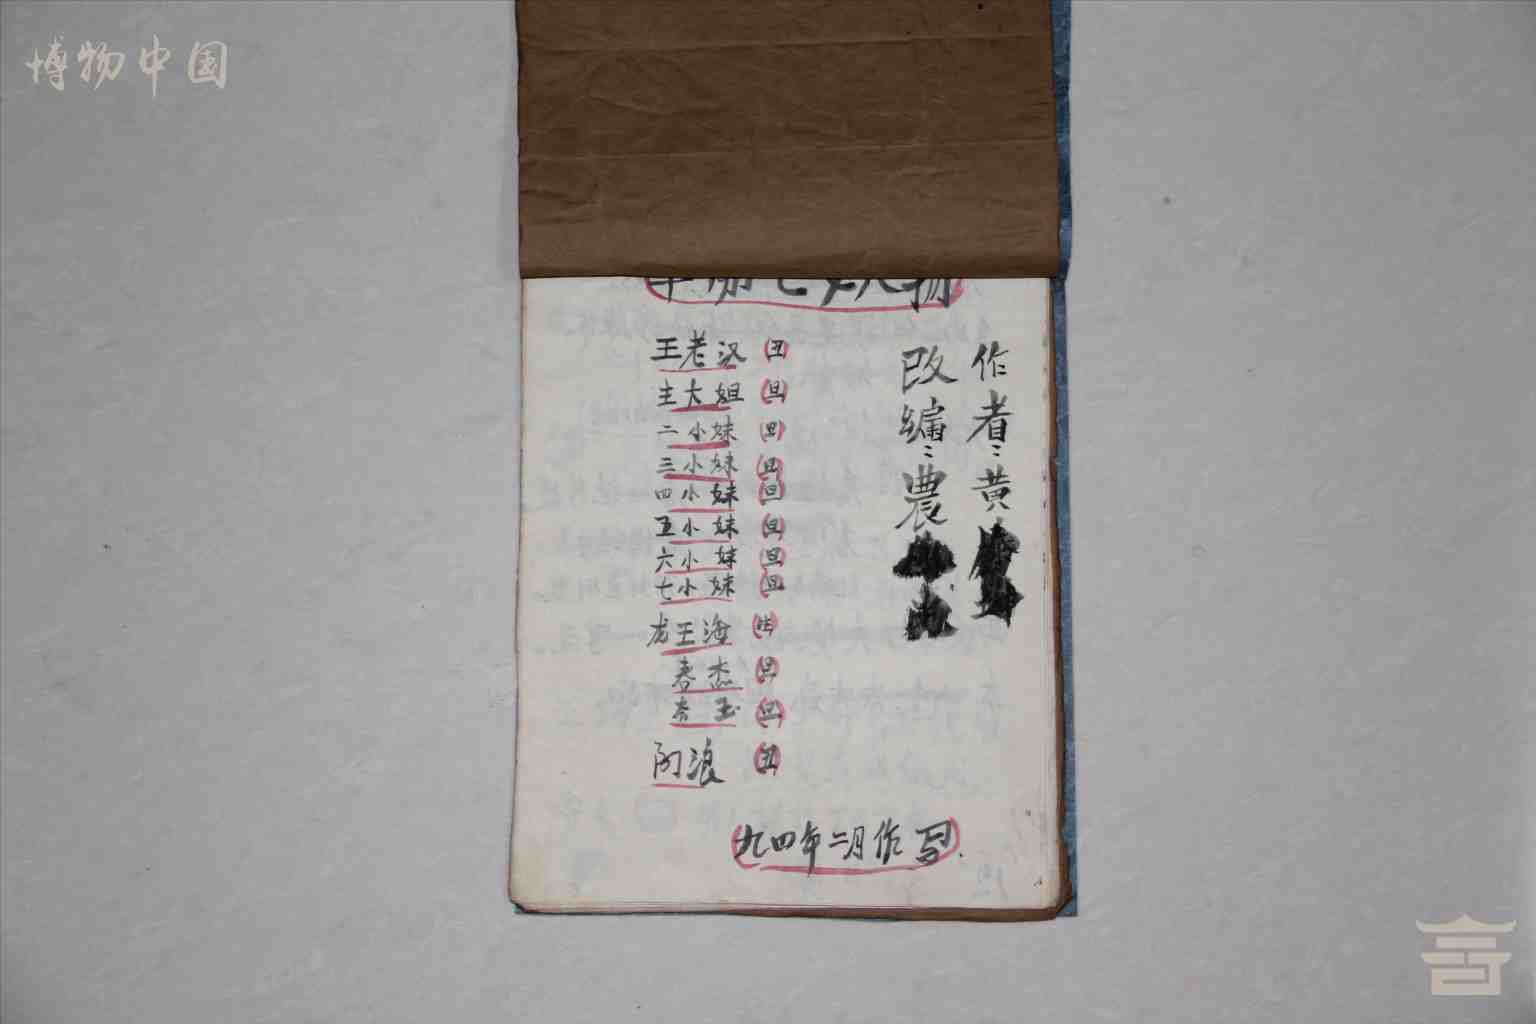 博物中国
人物
作者：黄
改编：農
王老汉（丑）
主大姐（旦）
二小妹（旦）
三小妹（旦）
四小妹（旦）
五小妹（旦）
六小妹（旦）
七小妹（旦）
龙王海（生）
春杰（旦）
春玉（旦）
阿浪（丑）
九四年二月作写.